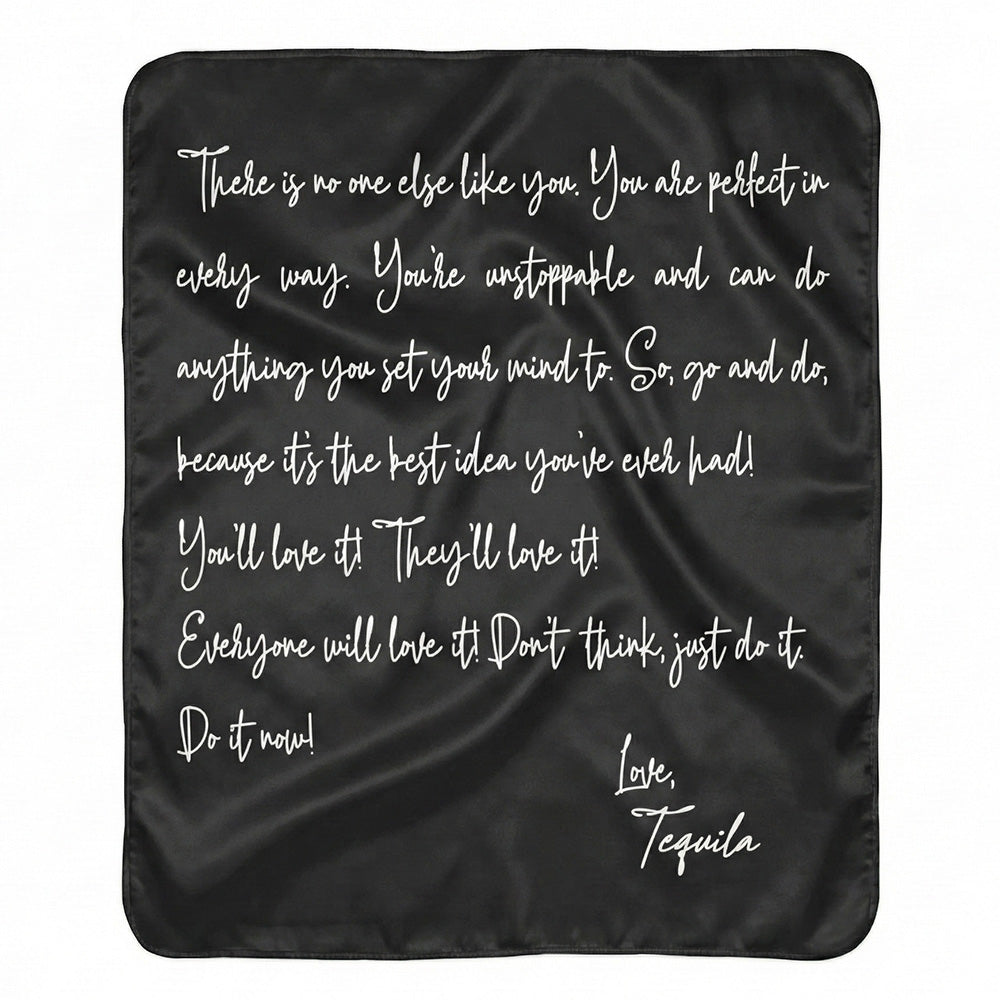 There is no one else like you. You are perfect in
every way. You're unstoppable and can do
anything you set your mind to. So, go and do,
because it's the best idea you've ever had!
You'll love it! They'll love it!
Everyone will love it! Don't think, just do it.
Do it now!
Love,
Tequila